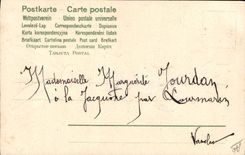 Postkarte Carte postale
Weltpostverein Union postale universelle
Levelező-Lap Correspondenzkarte Dopisnice
Karta korespondencyjna Korespondenční lístek
Briefkaart Cartolina postale Post card Brefkort
Открытое письмо Дописна Карта
TARJETA POSTAL
Mademoiselle Marguerite Jourdan
à la Jacquière par Lourmarin
Vaucluse